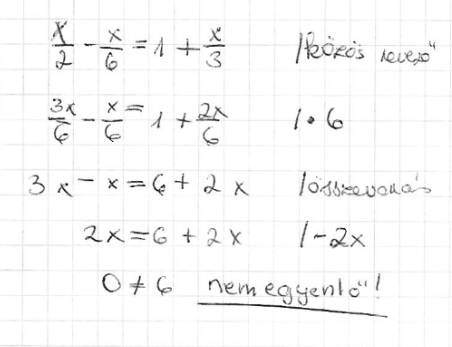 x/2 - x/6 = 1 + x/3 /közös nevező
3x/6 - x/6 = 1 + 2x/6 / • 6
3x - x = 6 + 2x /összevonás
2x = 6 + 2x / -2x
0 ≠ 6 nem egyenlő!